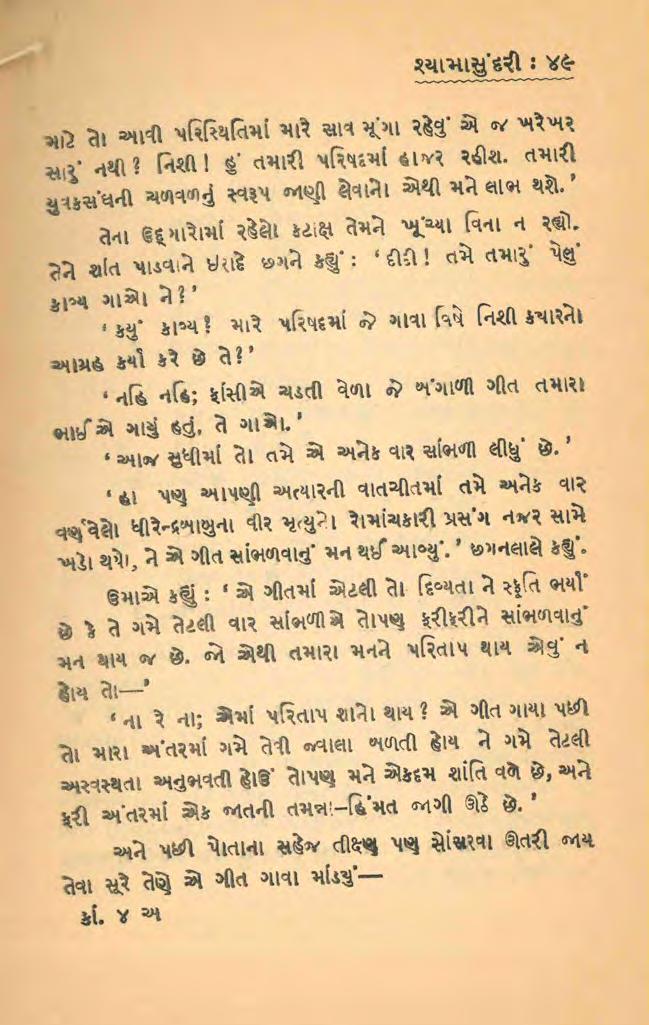 શ્યામાસુંદરી : ૪૯
માટે તો આવી પરિસ્થિતિમાં મારે સાવ મૂંગા રહેવું એ જ ખરેખર
સારું નથી ? નિશી ! હું તમારી પરિષદમાં હાજર રહીશ. તમારી
યુવકસંઘની ચળવળનું સ્વરૂપ જાણી લેવાનો એથી મને લાભ થશે.’
તેના ઉદ્‌ગારોમાં રહેલો કટાક્ષ તેમને ખૂંચ્યા વિના ન રહ્યો.
તેને શાંત પાડવાને ઇરાદે છગને કહ્યું : ‘દીદી ! તમે તમારું પેલું
કાવ્ય ગાઓ ને ?’
‘કયું કાવ્ય ? મારે પરિષદમાં જે ગાવા વિષે નિશી ક્યારનો
આગ્રહ કર્યા કરે છે તે ?’
‘નહિ નહિ; ફાંસીએ ચડતી વેળા જે બંગાળી ગીત તમારા
ભાઈએ ગાયું હતું, તે ગાઓ.’
‘આજ સુધીમાં તો તમે એ અનેક વાર સાંભળી લીધું છે.’
‘હા પણ આપણી અત્યારની વાતચીતમાં તમે અનેક વાર
વર્ણવેલો ધીરેન્દ્રબાબુના વીર મૃત્યુનો રોમાંચકારી પ્રસંગ નજર સામે
ખડો થયો, ને એ ગીત સાંભળવાનું મન થઈ આવ્યું.’ છગનલાલે કહ્યું.
ઉમાએ કહ્યું : ‘એ ગીતમાં એટલી તો દિવ્યતા ને સ્ફૂતિ ભર્યાં
છે કે તે ગમે તેટલી વાર સાંભળીએ તોપણ ફરીફરીને સાંભળવાનું
મન થાય જ છે. જો એથી તમારા મનને પરિતાપ થાય એવું ન
હોય તો—’
‘ના રે ના; એમાં પરિતાપ શાનો થાય ? એ ગીત ગાયા પછી
તો મારા અંતરમાં ગમે તેવી જ્વાલા બળતી હોય ને ગમે તેટલી
અસ્વસ્થતા અનુભવતી હોઉં તોપણ મને એકદમ શાંતિ વળે છે, અને
ફરી અંતરમાં એક જાતની તમન્ના–હિંમત જાગી ઊઠે છે.’
અને પછી પોતાના સહેજ તીક્ષ્ણ પણ સોંસરવા ઊતરી જાય
તેવા સૂરે તેણે એ ગીત ગાવા માંડ્યું—
કાં. ૪ અ